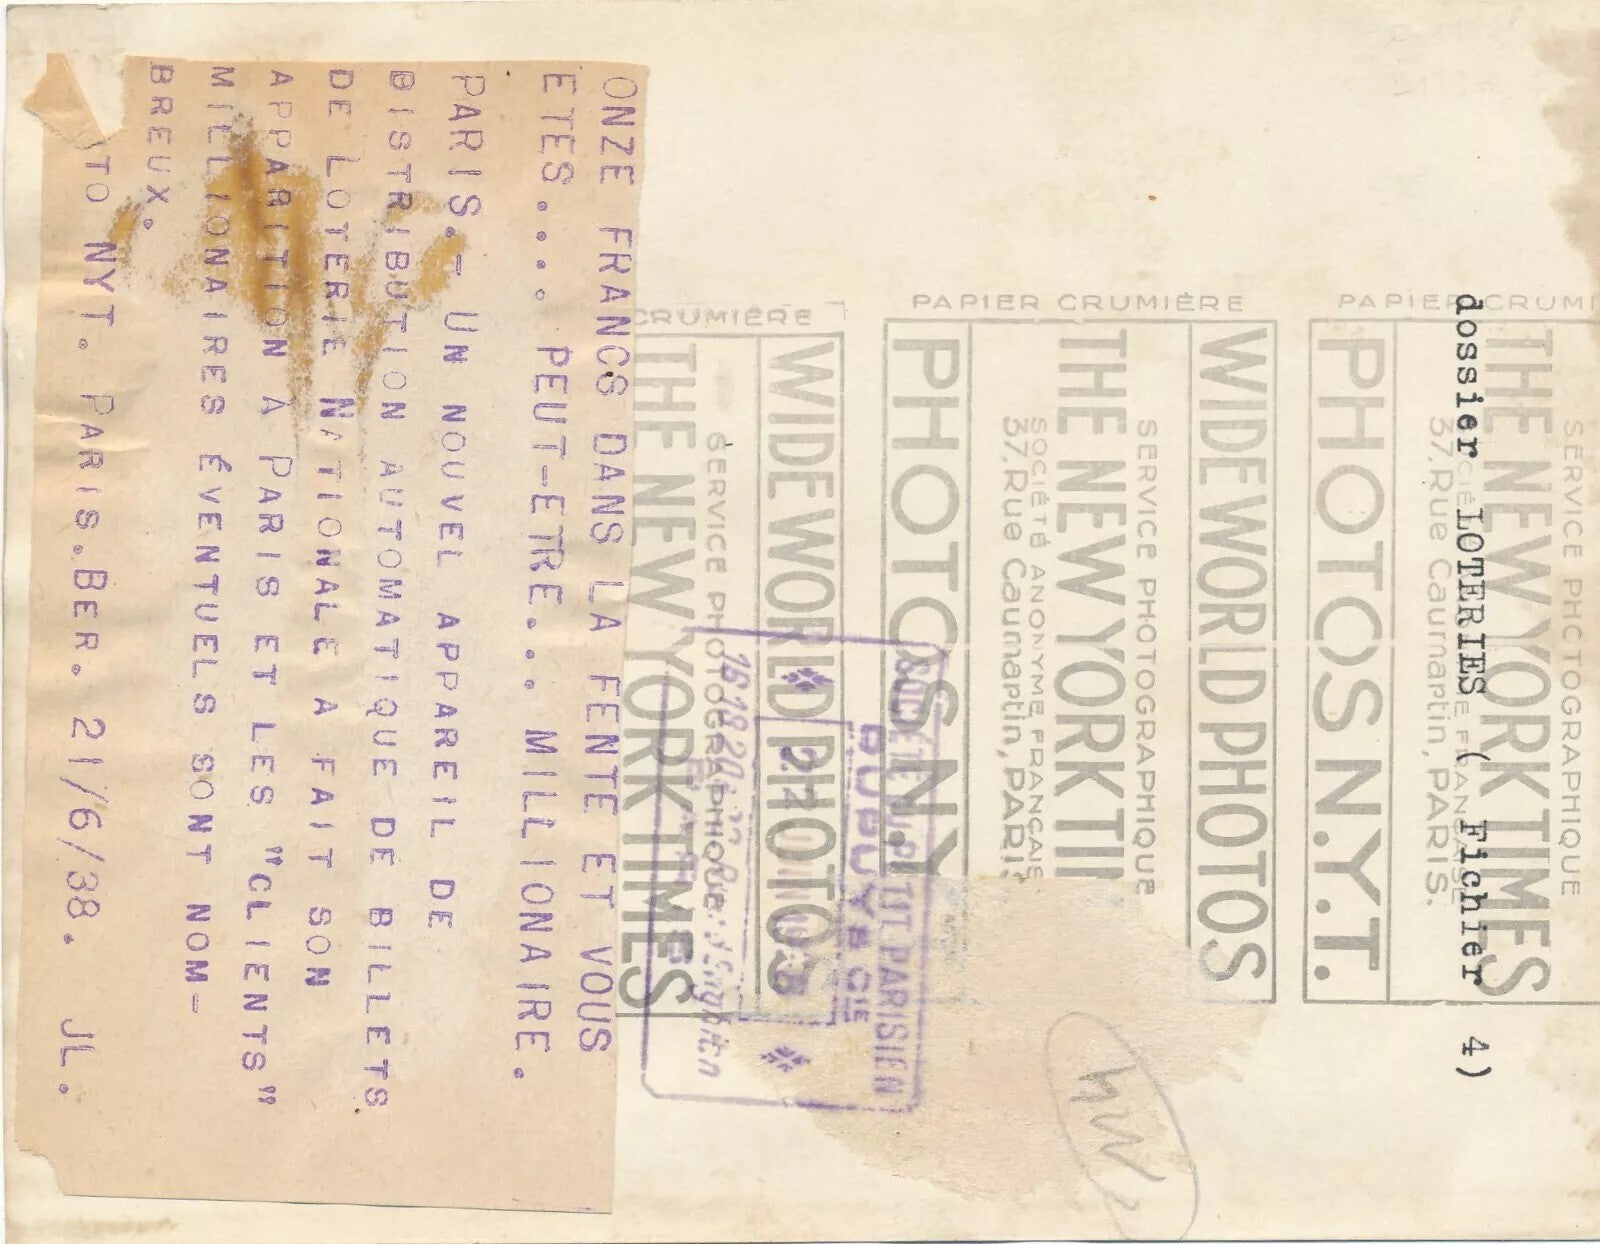 dossier LOTERIES ( Fichier 4)
PAPIER CRUMIÈRE
SERVICE PHOTOGRAPHIQUE
THE NEW YORK TIMES
SOCIÉTÉ ANONYME FRANÇAISE
37, Rue Caumartin, PARIS.
PHOTOS N.Y.T.
PAPIER CRUMIÈRE
WIDE WORLD PHOTOS
SERVICE PHOTOGRAPHIQUE
THE NEW YORK TIM
SOCIÉTÉ ANONYME FRANÇAISE
37, Rue Caumartin, PARIS
PHOTOS N.Y.
CRUMIÈRE
WIDE WORLD PHOTOS
SERVICE PHOTOGRAPHIQUE
THE NEW YORK TIMES
SOCIÉTÉ DU PETIT PARISIEN
DUPUY & CIE
22 JUIN
16.18.20.22 Rue d'Enghien
PARIS
ONZE FRANCS DANS LA FENTE ET VOUS
ETES.... PEUT-ETRE... MILLIONAIRE.
PARIS.- UN NOUVEL APPAREIL DE
DISTRIBUTION AUTOMATIQUE DE BILLETS
DE LOTERIE NATIONALE A FAIT SON
APPARITION A PARIS ET LES "CLIENTS"
MILLIONAIRES ÉVENTUELS SONT NOM-
BREUX.
TO NYT. PARIS.BER. 21/6/38. JL.